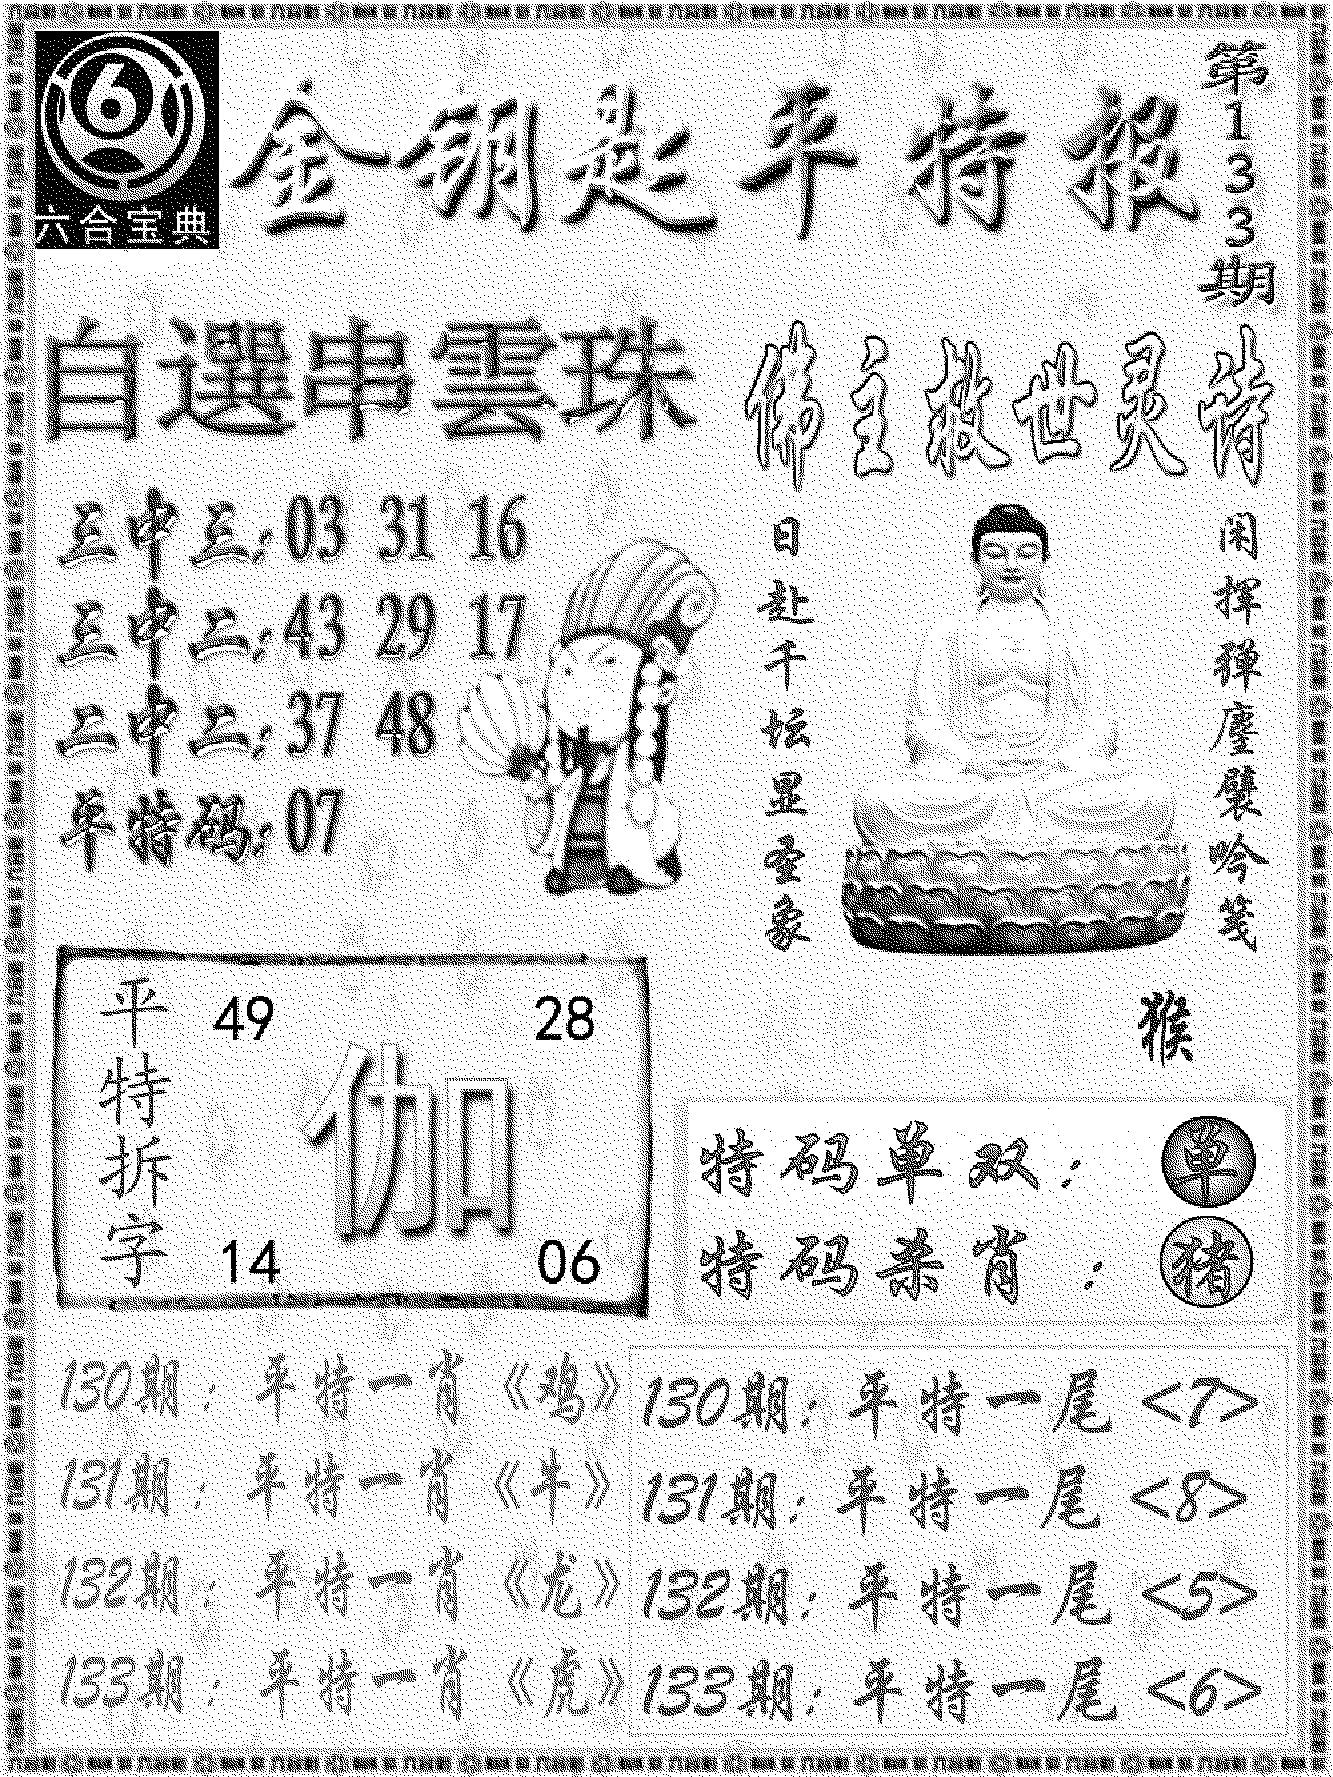 6
六合宝典
金钥匙平特报
第133期
自選串雲珠
三中三:03 31 16
三中二:43 29 17
二中二:37 48
平特码:07
佛主救世灵诗
闲挥弹塵襞吟笺
日赴千坛显圣象
猴
平特拆字
49 28
伽
14 06
特码单双:单
特码杀肖:猪
130期:平特一肖《鸡》
131期:平特一肖《牛》
132期:平特一肖《龙》
133期:平特一肖《虎》
130期:平特一尾<7>
131期:平特一尾<8>
132期:平特一尾<5>
133期:平特一尾<6>